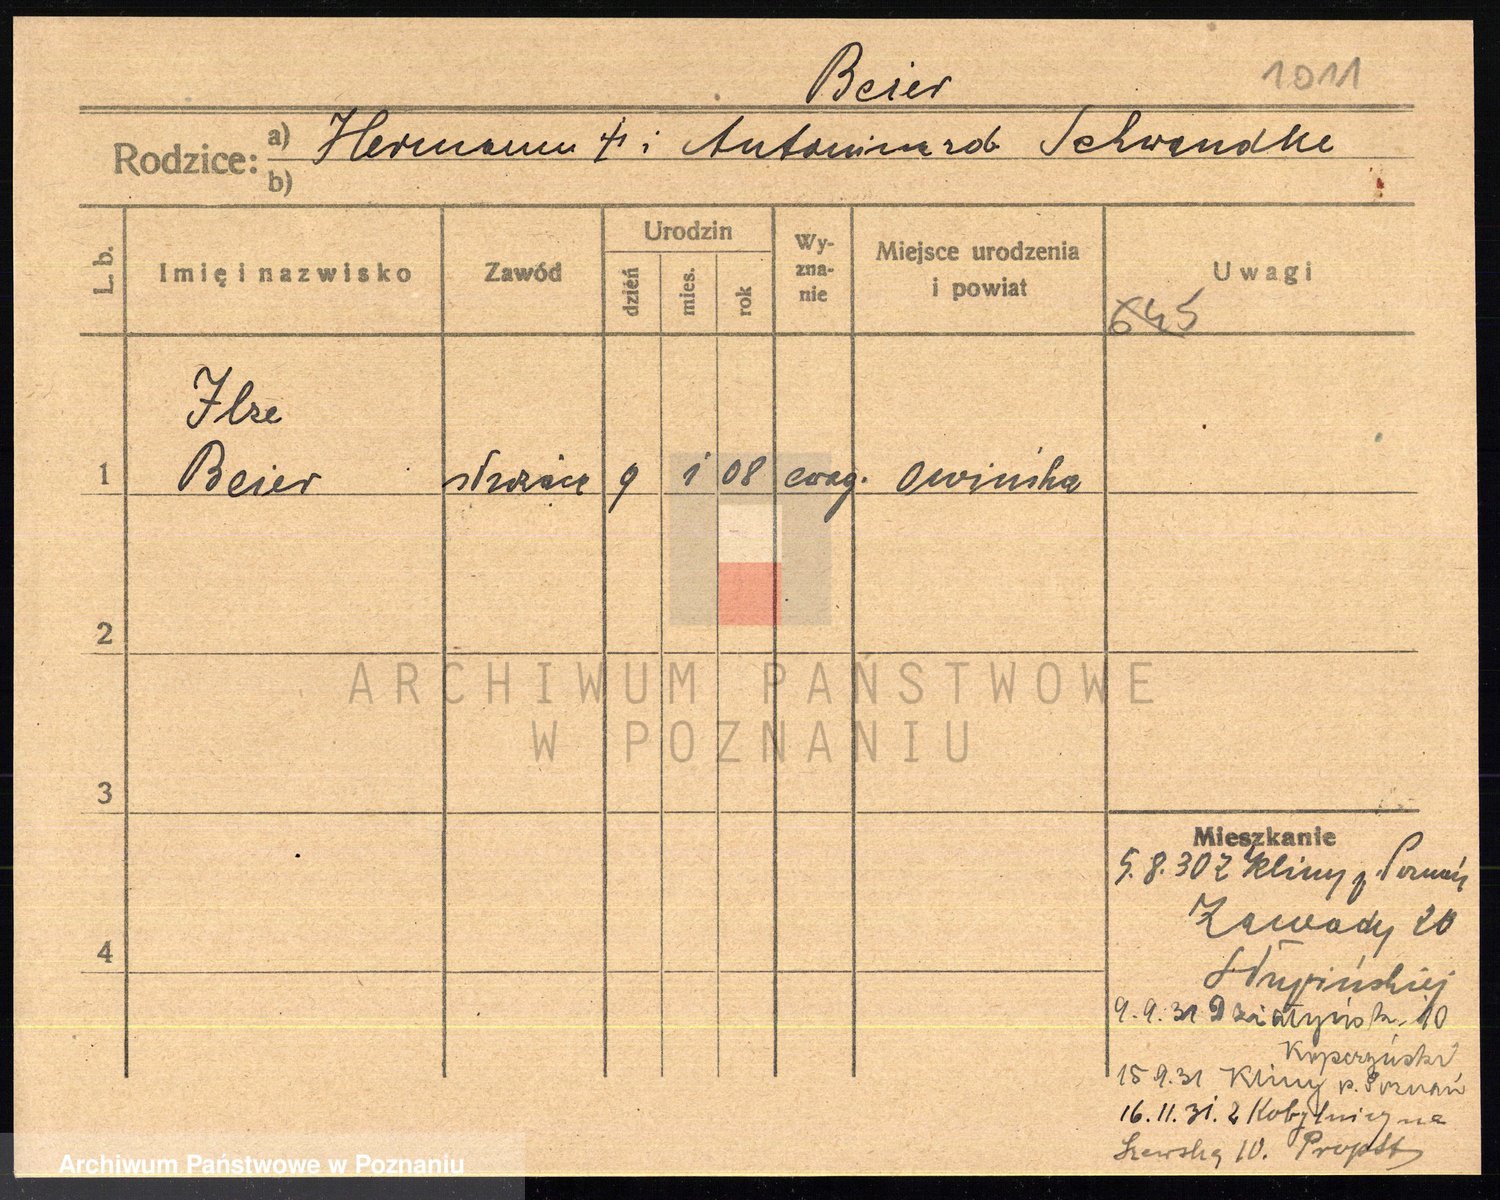 Beier 1011
Rodzice: a) Hermann i Antonina rob Schwandke
b)
L. b. Imię i nazwisko Zawód Urodzin Wy-zna-nie Miejsce urodzenia i powiat Uwagi
dzień mies. rok
645
Ilse
1 Beier służąca 9 1 08 ewag. Owińska
2
ARCHIWUM PAŃSTWOWE
W POZNANIU
3
Mieszkanie
5.8.30 z Kliny p. Poznań
Zawady 20
4
Słupińskiej
9.9.31 Działyńsk. 10
15 9.31 Kliny p. Poznań
16.11.31. z Kobylnicy na
Szewską 10. Propst
Archiwum Państwowe w Poznaniu